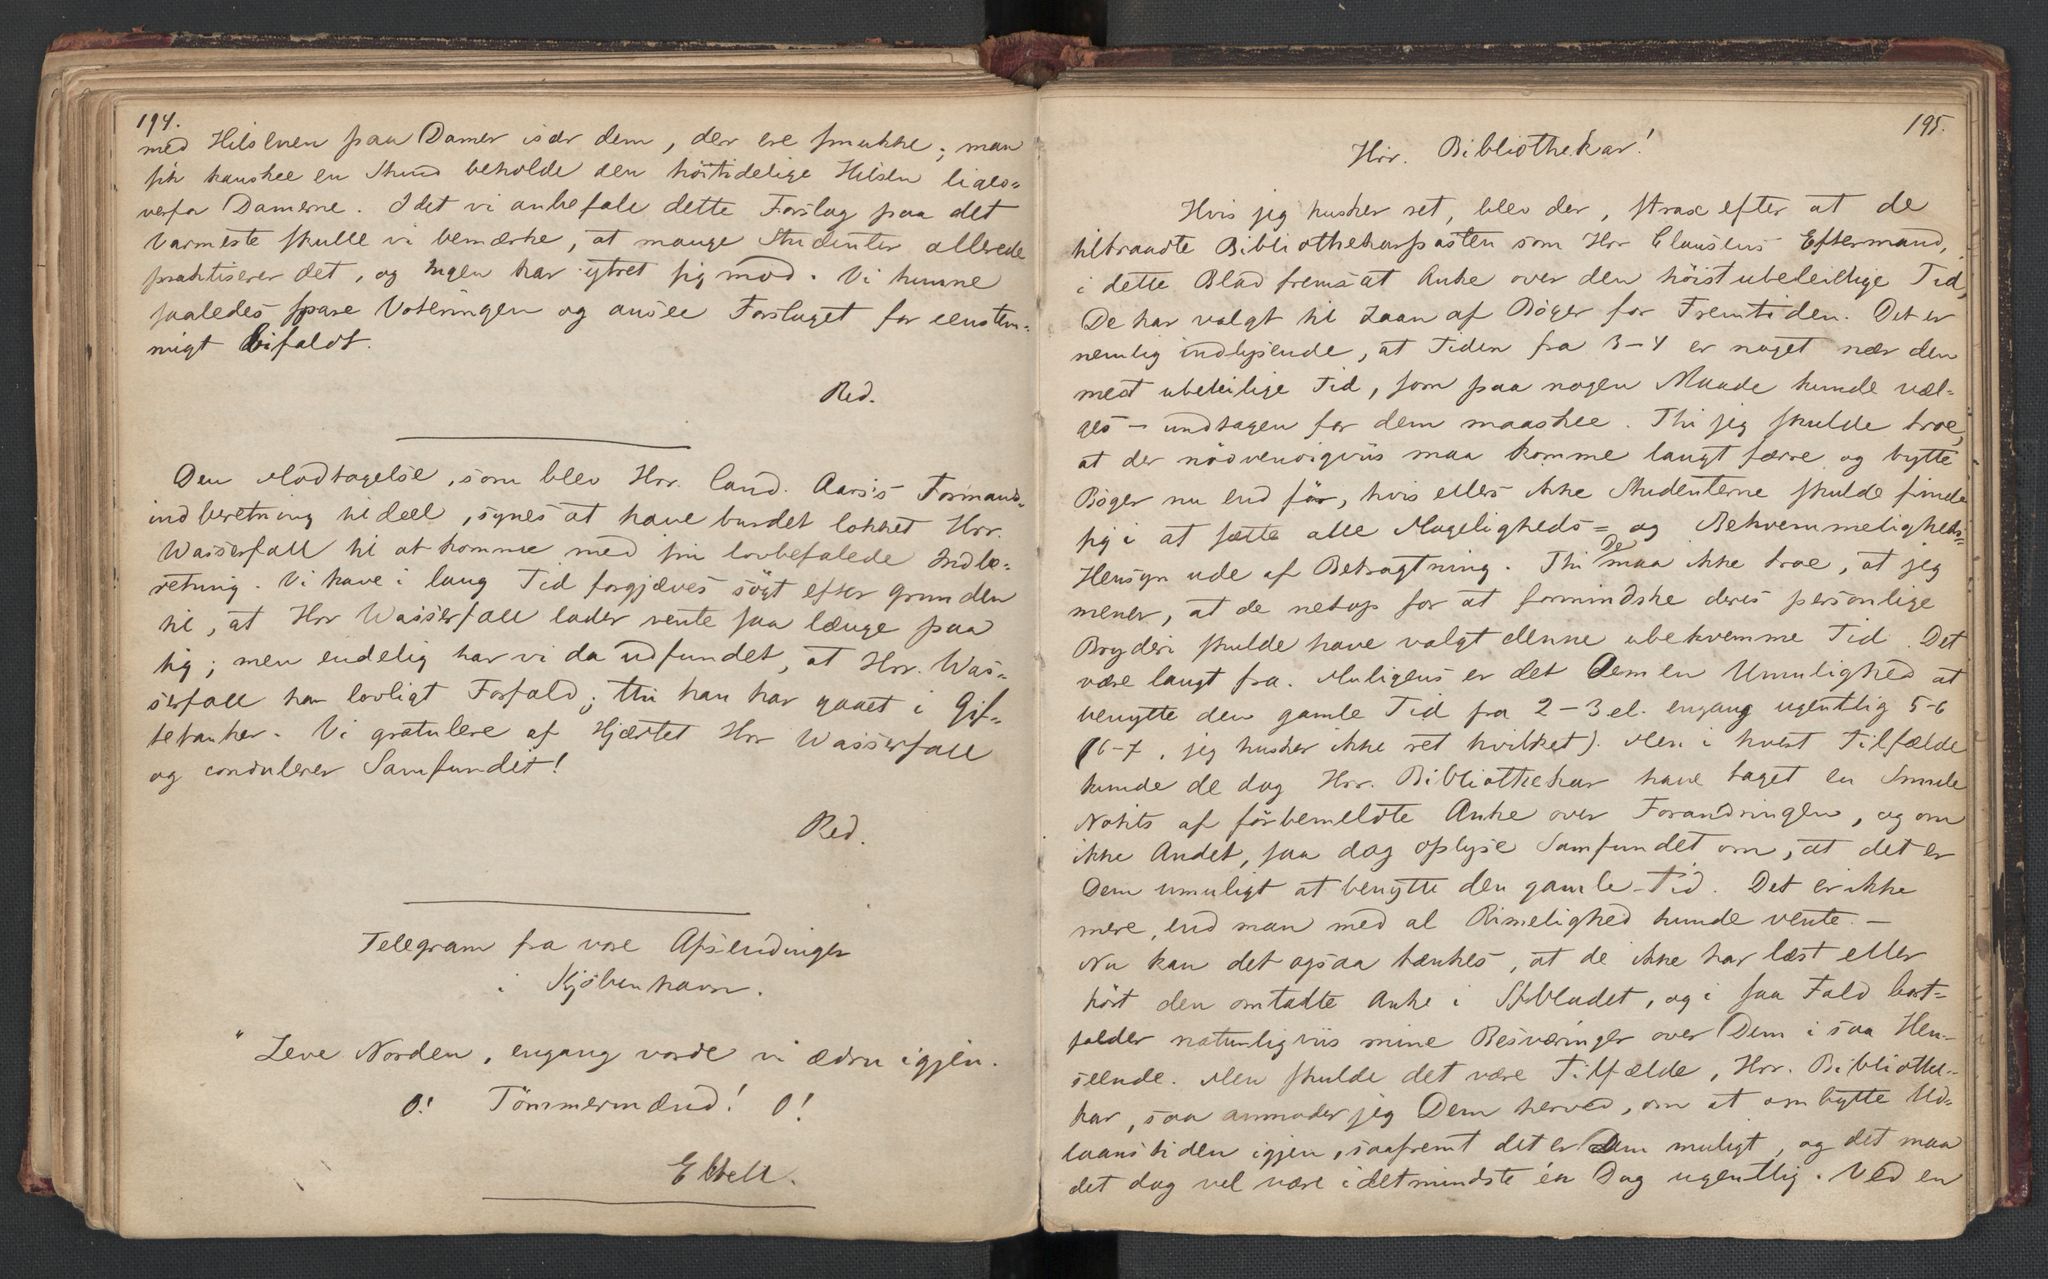 194.
med Hilsenen paa Damer især dem, der ere smukke; man
fik kanskee en Stund beholde den höitidelige Hilsen ligeo-
verfor Damerne. Idet vi anbefale dette Forslag paa det
varmeste skulle vi bemærke, at mange Studenter allerede
praktiserer det, og Ingen har ytret sig mod. Vi kunne
saaledes spare Voteringen og ansee Forslaget for eenstem-
migt bifaldt.
Red.
Den Modtagelse, som blev Hrr. Cand. Aars's Formands-
indberetning tildeel, synes at have burdet lokket Hrr.
Wasserfall til at komme med sin lovbefalede Indbe-
retning. Vi have i lang Tid forgjæves sögt efter Grunden
til, at Hrr Wasserfall lader vente saa længe paa
sig; men endelig har vi da udfundet, at Hrr. Was-
serfall har lovligt Forfald; thi han har gaaet i Gif-
tetanker. Vi gratulere af Hjertet Hrr Wasserfall
og condulerer Samfundet!
Red.
Telegram fra vore Afsendinger
i Kjöbenhavn.
"Leve Norden, engang vorde vi ædru igjen.
O! Tömmermænd! O!
Ebbell.
195.
Hrr. Bibliothekar!
Hvis jeg husker ret, blev der, strax efter at de
tiltraadte Bibliothekarposten som Hrr Clausens Eftermand,
i dette Blad fremsat Anke over den höist ubeleilige Tid,
De har valgt til Laan af Böger for Fremtiden. Det er
nemlig indlysende, at Tiden fra 3-4 er noget nær den
mest ubeleilige Tid, som paa nogen Maade kunde væl-
ges - undtagen for dem maaskee. Thi jeg skulde troe,
at der nödvendigviis maa komme langt færre og bytte
Böger nu end för, hvis ellers ikke Studenterne skulde finde
sig i at sætte alle Mageligheds= og Bekvemmeligheds=
Hensyn ude af Betragtning. Thi De maa ikke troe, at jeg
mener, at de netop for at formindske deres personlige
Bryderi skulde have valgt denne ubekvemme Tid. Det
være langt fra. Muligens er det Dem en Umulighed at
benytte den gamle Tid fra 2-3 el. engang ugentlig 5-6
(6-7, jeg husker ikke ret hvilket). Men i hvert Tilfælde
kunde de dog Hrr. Bibliothekar have taget en Smule
Notits af förbemeldte Anke over Forandringen, og om
ikke Andet, saa dog oplyse Samfundet om, at det er
Dem umuligt at benytte den gamle Tid. Det er ikke
mere, end man med al Rimelighed kunde vente. -
Nu kan det ogsaa tænkes, at de ikke har læst eller
hört den omtalte Anke i Stbladet, og i saa Fald bort-
falder naturligviis mine Besværinger over Dem i saa Hen-
seende. Men skulde det være Tilfælde, Hrr. Bibliothe-
kar, saa anmoder jeg Dem herved, om at ombytte Ud-
laanstiden igjen, saafremt det er Dem muligt, og det maa
det dog vel være idetmindste én Dag ugentlig. Ved en